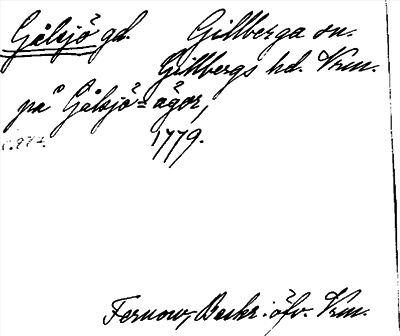 Gålsjö gd. Gillberga sn.
Gillbergs hd. Vrm.
på Gålsjö-ågor,
1779.
Fernow, Beskr. öfv. Vrm.